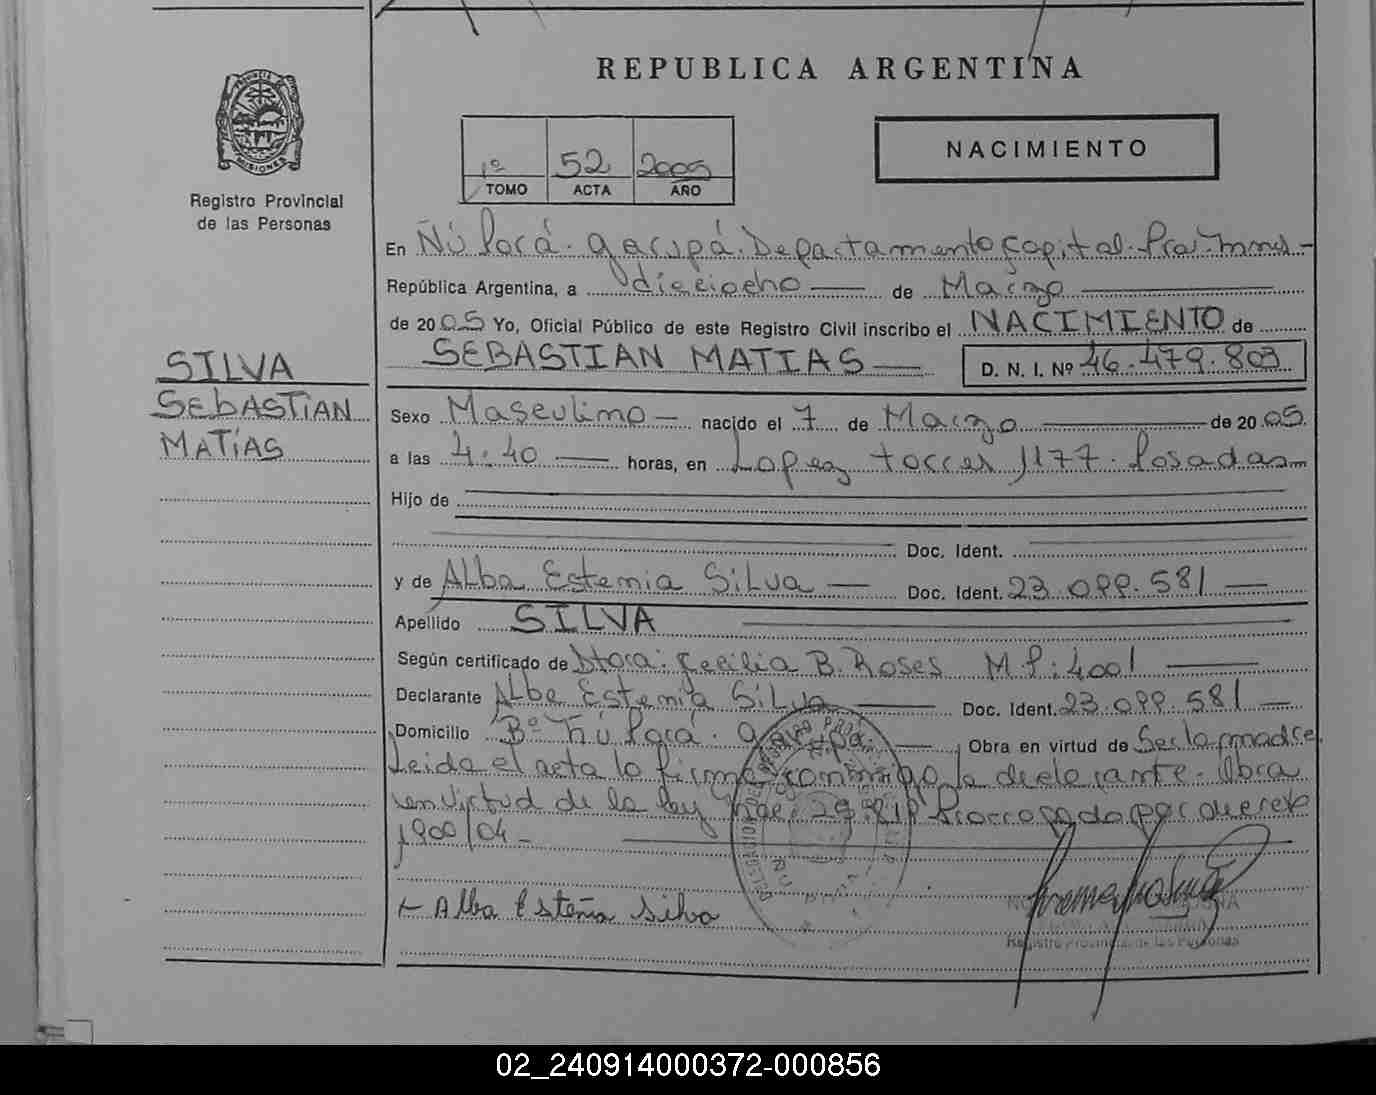 REPUBLICA ARGENTINA
PROVINCIA DE
MISIONES
Registro Provincial
de las Personas
1º 52 2005
TOMO ACTA AÑO
NACIMIENTO
En Ñú Porá. Garupá. Departamento Capital. Pro. Mnes -
República Argentina, a dieciocho de Marzo
de 2005 Yo, Oficial Público de este Registro Civil inscribo el NACIMIENTO de
SEBASTIAN MATIAS D. N. I. Nº 46.479.803
SILVA
SEBASTIAN
MATÍAS
Sexo Masculino - nacido el 7 de Marzo de 2005
a las 4:40 horas, en Lopez torres 1177. Posadas
Hijo de
Doc. Ident.
y de ALba Estemia SiLva Doc. Ident. 23.099.581
Apellido SILVA
Según certificado de Dtora: Cecilia B. Roses M.P: 4001
Declarante ALba Estemia SiLva Doc. Ident. 23.099.581
Domicilio Bº Ñú Porá. Garupá Obra en virtud de Ser la madre
Leida el acta la firma conmigo la declarante. Obra
en virtud de la ley Nac. Prorrogado por decreto
1900/04 -
Alba Esteña Silva
Registro Provincial de las Personas
02_240914000372-000856